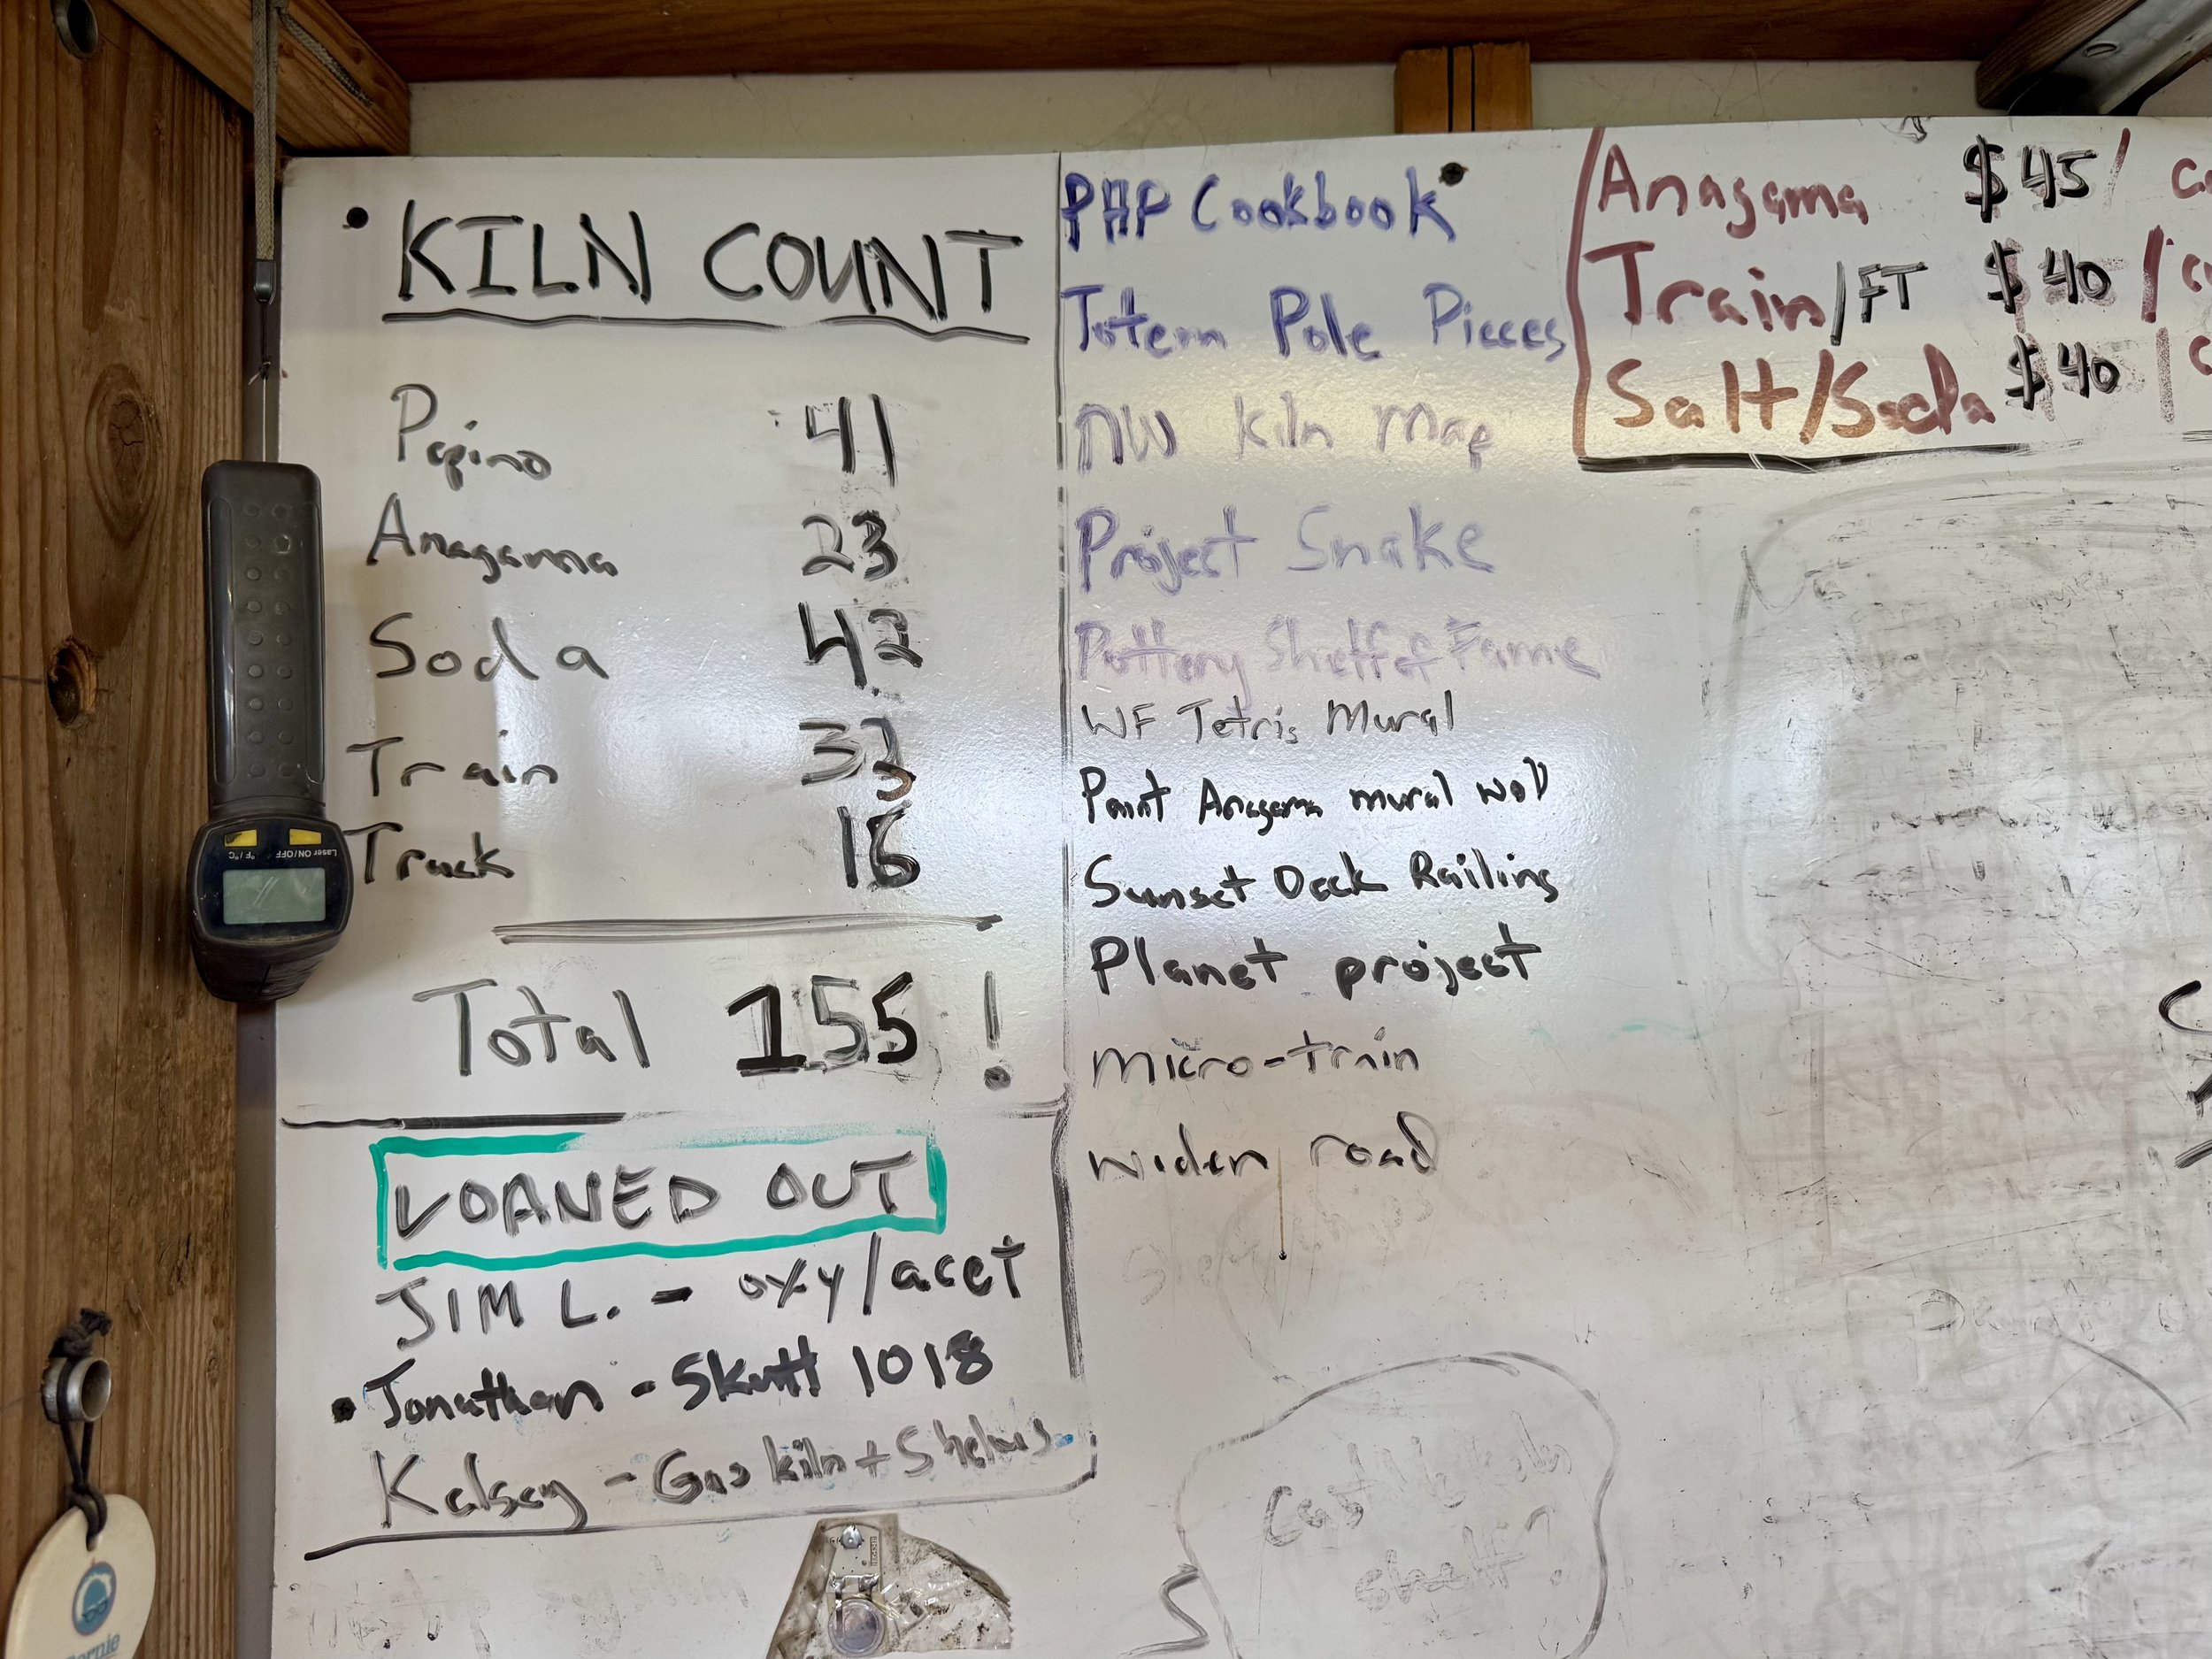 KILN COUNT
Pepino 41
Anagama 23
Soda 42
Train 33
Track 16
Total 155 !
LOANED OUT
JIM L. - oxy/acet
Jonathan - Skutt 1018
Kelsey - Gas kiln + Shelves
PHP Cookbook
Totem Pole Pieces
NW Kiln Map
Project Snake
Pottery Shelf of Fame
WF Tetris Mural
Paint Anagama mural wall
Sunset Deck Railing
Planet project
Micro-train
Widen road
shelf?
Anagama $45/
Train/FT $40/
Salt/Soda $40/
Laser ON/OFF °F/°C